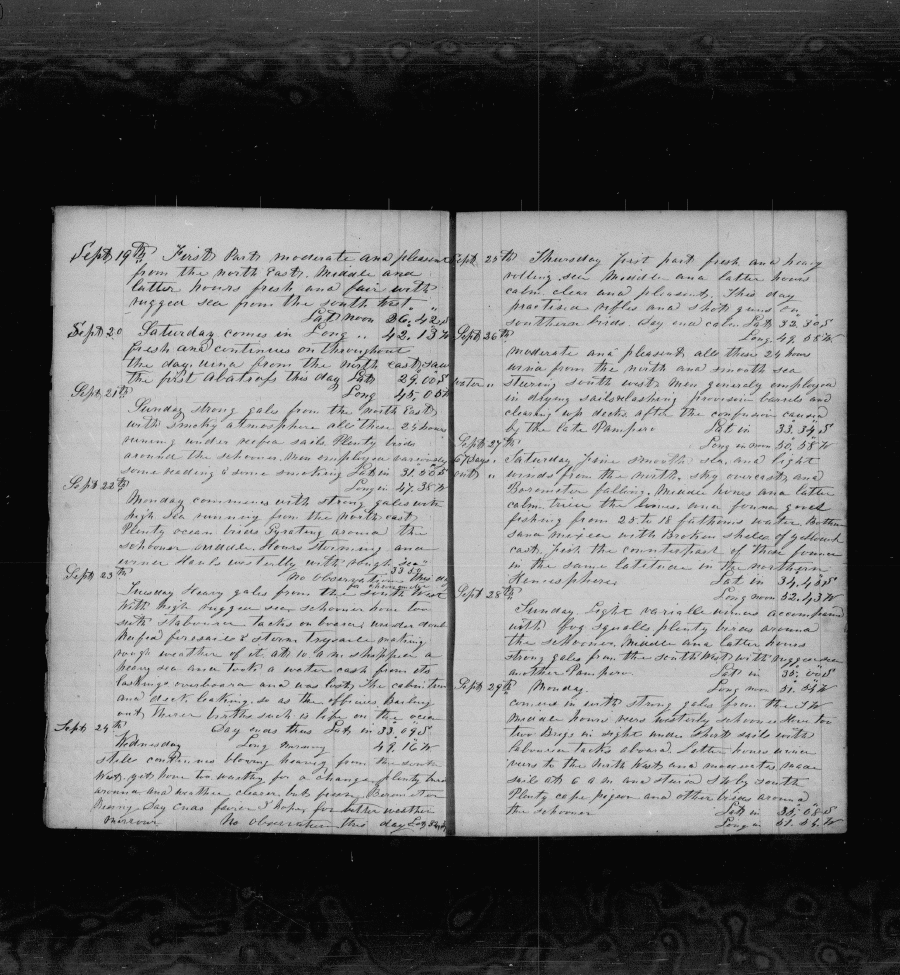 Sept 19th First Part moderate and pleasant
from the north East. Middle and
latter hours fresh and fair with
rugged sea from the south west
Lat noon 36.42.S
Sept 20 Saturday comes in Long " 42.13 W
fresh and continues on throughout
the day. wind from the north east, saw
the first Abatross this day Lat 29.00 S
Sept, 21th Long 45.06 W
Sunday strong gales from the North East
with smoky atmosphere all these 24 hours
running under reefed sails. Plenty birds
around the schooner. Men employed variously
some reading & some smoking Lat in 31.50 S
Sept 22th Long in 47.38 W
Monday commences with strong gales with
high sea running from the north east
Plenty ocean birds Gyrating around the
schooner Middle Hours Storming and
wind westerly with rough sea
Sept 23th No observation this day
Tuesday Heavy gales from the South West
With high rugged sea schooner hove too
with starboard Tacks on board under double
Reefed foresail & storm trysail making
rough weather of it at 10 a m shipped a
heavy sea and took a water cask from its
lashings overboard and was lost, the cabin
and deck leaking so as the officers
out their births such is life on the ocean
Sept 24th Day ends thus Lat in 33.09 S
Wednesday Long 49.16 W
still continues blowing heavy from the south
West yet hove too waiting for a change plenty birds
around and weather clearer but from Barometer
Day ends fairer & hopes for better weather
morrow No observation this day
Sept 25th Thursday First part fresh and heavy
rolling sea Middle and latter hours
calm clear and pleasant, This day
practised rifles and shot guns on
southern birds. Day end calm Lat 32.30 S
Sept 26th Long 49.58 W
moderate and pleasant all these 24 hours
wind from the north and smooth sea
stering south west, men generaly employed
in drying sails washing provision barrels and
clearing up decks after the confusion caused
by the late Pampero Lat in 33.34 S
Sept 27th Long in noon 50.58 W
67 days Saturday fair smooth sea, and light
out " winds from the north, sky overcast, and
Barometer falling. Middle hours and latter
calm. tried the lines and found good
fishing from 25 to 18 fathoms water, Bottom
sand mixed with Broken shells of yellowish
cast, fish the counterpart of those found
in the same latitude in the northern
Hemisphere Lat in 34.48 S
Sept 28th Long noon 52.43 W
Sunday. Light variable winds accompanied
with fog squalls, plenty birds around
the schooner, Middle and latter hours
strong gales from the South West with rugged sea
another Pampero Lat in 35.00 S
Sept 29th Monday. Long noon 51.54 W
comes in with strong gales from the S W
Middle hours veers westerly schooner Hove too
two Brigs in sight under Short sails with
Larboard tacks aboard. Latter hours wind
veers to the north West and moderates made
sail at 6 a m and stered S W by south
Plenty cape pigeon and other birds around
the schooner Lat in 35.08 S
Long in 51.46 W